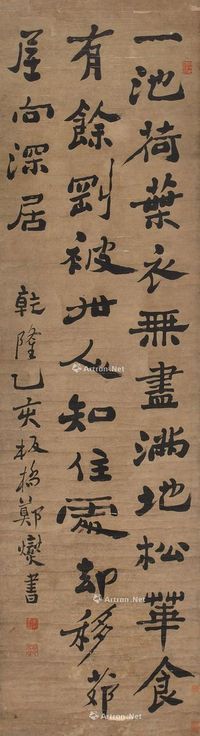 一池荷葉衣無盡滿地松華食
有餘剛被世人知住處却移茆
屋向深居
乾隆乙亥板橋鄭燮書
Artron.Net
Artron.Net
Artron.Net
Artron.Net